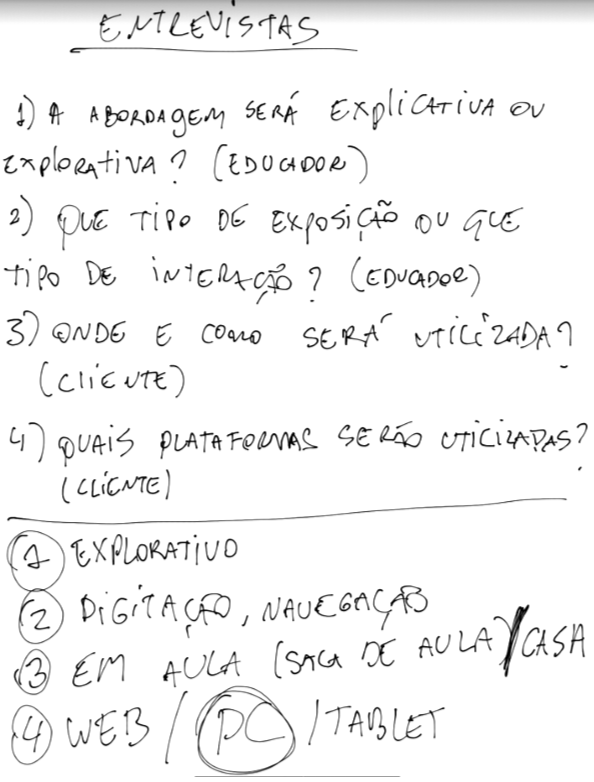 ENTREVISTAS
1) A ABORDAGEM SERÁ EXPLICATIVA OU
EXPLORATIVA? (EDUCADOR)
2) QUE TIPO DE EXPOSIÇÃO OU QUE
TIPO DE INTERAÇÃO? (EDUCADOR)
3) ONDE E COMO SERÁ UTILIZADA?
(CLIENTE)
4) QUAIS PLATAFORMAS SERÃO UTILIZADAS?
(CLIENTE)
1 EXPLORATIVO
2 DIGITAÇÃO, NAVEGAÇÃO
3 EM AULA (SALA DE AULA)/CASA
4 WEB / PC / TABLET